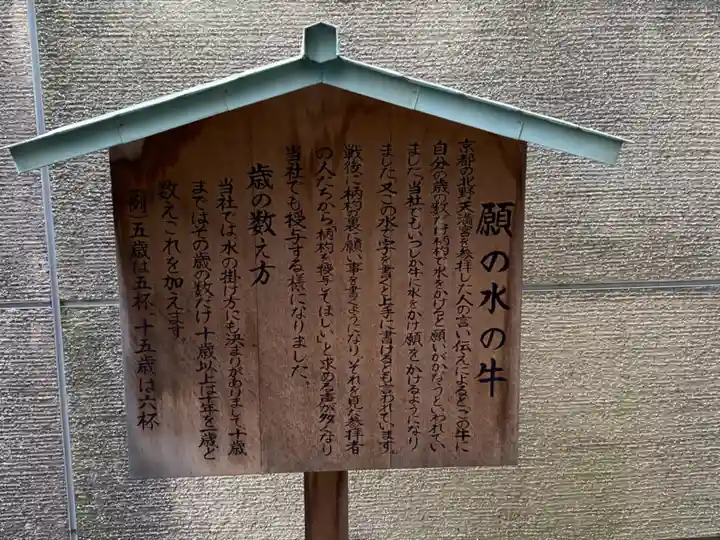 願の水の牛
京都の北野天満宮を参拝した人の言い伝えによるとこの牛に
自分の歳の数だけ柄杓で水をかけると願いがかなうといわれてい
ました。当社でもいつしか牛に水をかけ願をかけるようになり
ました。又この水で字を書くと上手に書けるとも言われています。
戦後に柄杓の裏に願い事を書くようになり、それを見た参拝者
の人たちから「柄杓を授与してほしい」と求める声が多くなり
当社でも授与する様になりました。
歳の数え方
当社では水の掛け方にも決まりがありまして、十歳
まではその歳の数だけ 十歳以上は十年を一歳と
数えこれを加えます。
(例)五歳は五杯、十五歳は六杯